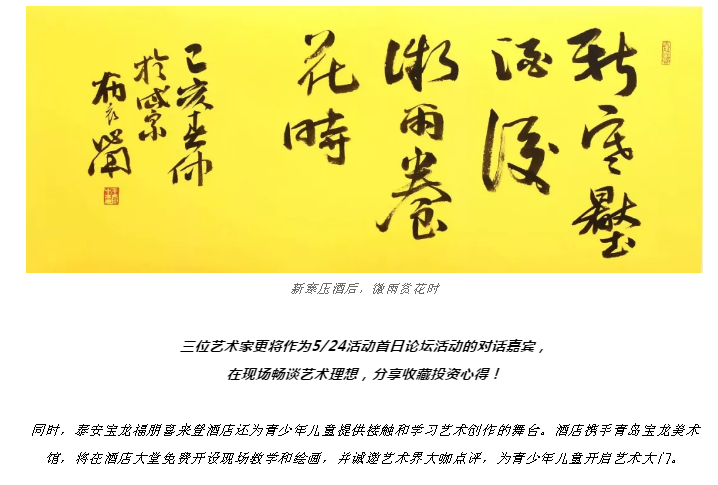 新寒壓
酒後
微雨養
花時
己亥春仲
新寒压酒后，微雨赏花时
三位艺术家更将作为5/24活动首日论坛活动的对话嘉宾，
在现场畅谈艺术理想，分享收藏投资心得！
同时，泰安宝龙福朋喜来登酒店还为青少年儿童提供接触和学习艺术创作的舞台。酒店携手青岛宝龙美术
馆，将在酒店大堂免费开设现场教学和绘画，并诚邀艺术界大咖点评，为青少年儿童开启艺术大门。